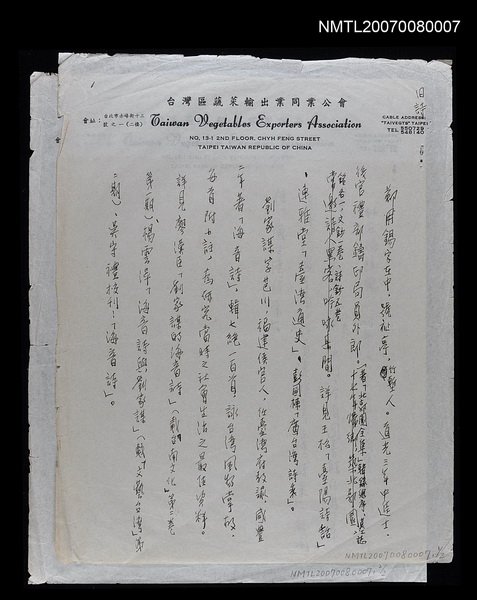 NMTL20070080007
台灣區蔬菜輸出業同業公會
會址：台北市赤峰街十三號之一(二樓)
Taiwan Vegetables Exporters Association
NO. 13-1 2ND FLOOR, CHYH FENG STREET
TAIPEI TAIWAN REPUBLIC OF CHINA
CABLE ADDRESS:
"TAIVEGTS" TAIPEI
旧詩
鄭用錫字在中，號祉亭，竹塹人。道光三年中進士，
後官禮部鑄印局員外郎。
連雅堂「臺灣通史」、彭國棟「廣台灣詩乘」。
劉家謀字芑川，福建侯官人，任臺灣府教諭，咸豐
二年著「海音詩」，輯七絕一百首，詠台灣風物掌故，
每首附以註，為研究當時之社會生活之最佳資料。
詳見廖漢臣「劉家謀的海音詩」(載台南文化」第三卷
第一期)、楊雲萍「海音詩與劉家謀」(載「文藝台灣」第
二期)、吳守禮校刊「海音詩」。
NMTL20070080007
NMTL20070080007